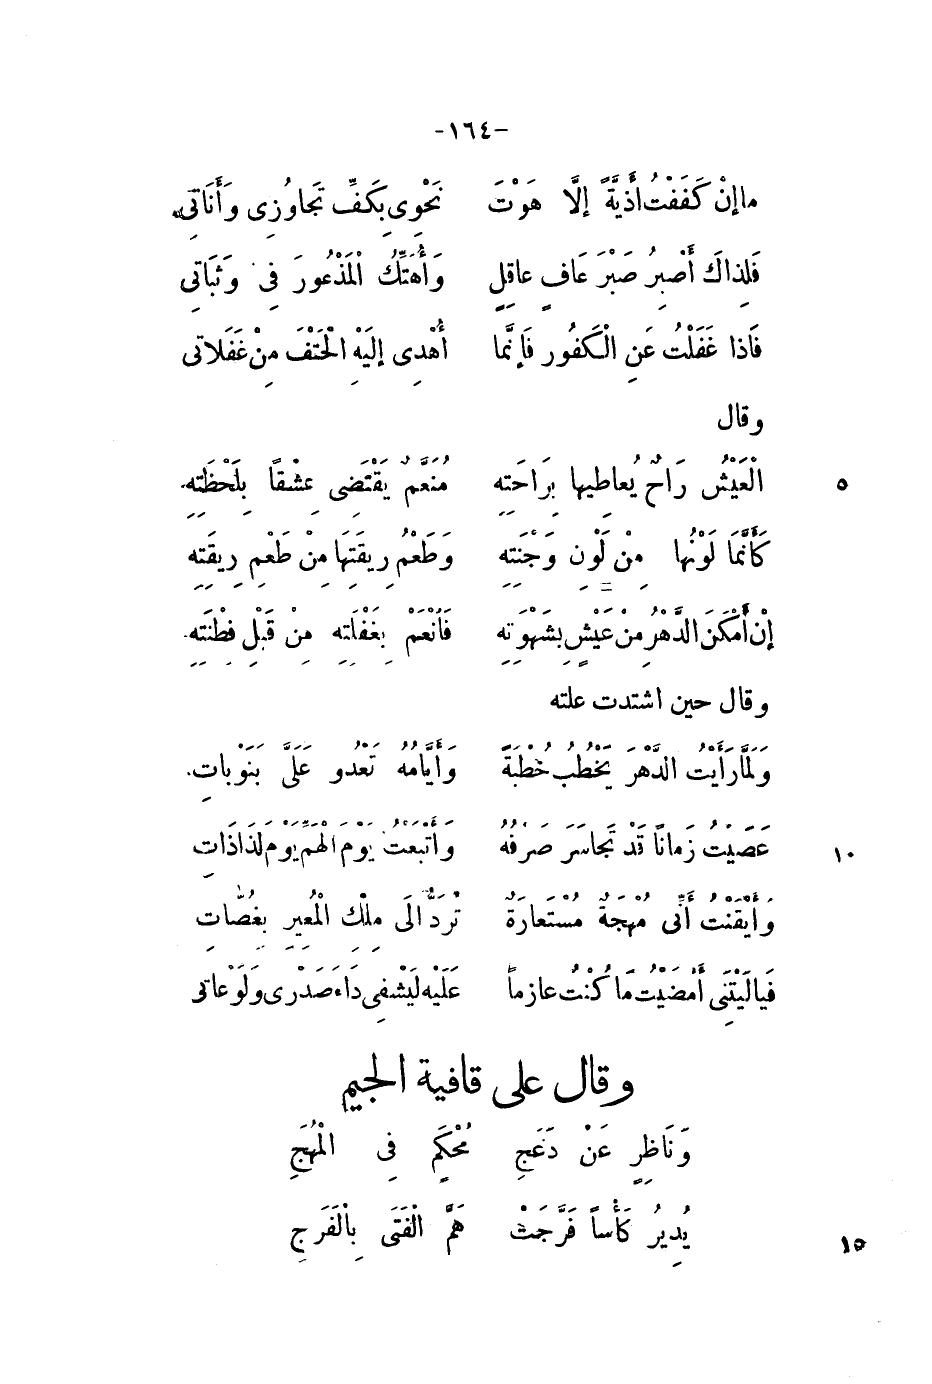 -١٦٤-
ما إنْ كَفَفْتُ أَذِيَّةً إلَّا هَوْتَ نَحْوِى بِكَفِّ تَجاوُزِى وَأَنَاتِى
فَلِذاكَ أَصْبِرُ صَبْرَ عَافٍ عاقِلٍ وَأُهَتِّكُ الْمَذْعُورَ فِى وَثَبَاتِى
فَاذا غَفَلْتُ عَنِ الْكَفُورِ فَإِنَّما أُهْدِى إلَيْهِ الْحَتْفَ مِنْ غَفَلاتى
وقال
الْعَيْشُ رَاحٌ يُعاطِيها بِرَاحَتِهِ مُنَعَّمٌ يَقْتَضِى عِشْقاً بِلَحْظَتِهِ
كَأَنَّمَا لَوْنُها مِنْ لَوْنِ وَجْنَتِهِ وَطَعْمُ رِيقَتِهَا مِنْ طَعْمِ رِيقَتِهِ
إنْ أَمْكَنَ الدَّهْرُ مِنْ عَيْشٍ بِشَهْوَتِهِ فَانْعَمْ بِغَفْلَتِهِ مِنْ قَبْلِ فِطْنَتِهِ
٥
وقال حين اشتدت علته
وَلَمَّا رَأَيْتُ الدَّهْرَ يَخْطُبُ خُطْبَةً وَأَيَّامُهُ تَعْدُو عَلَىَّ بَنَوْبَاتِ
عَصَيْتُ زَمَاناً قَدْ تَجَاسَرَ صَرْفُهُ وَأَتْبَعْتُ يَوْمَ الْهَمِّ يَوْمَ لَذَاذَاتِ
١٠
وَأَيْقَنْتُ أَنِّى مُهْجَةٌ مُسْتَعارَةٌ تُرَدُّ الَى مِلْكِ الْمُعِيرِ بِغُصَّاتِ
فَيالَيْتَنِى أَمْضَيْتُ مَا كُنْتُ عازِماً عَلَيْهِ لَيْشْفِى دَاءَ صَدْرِى وَلَوْعاتى
وقال على قافية الجيم
وَنَاظِرٍ عَنْ دَعَجِ مُحْكَمٍ فِى الْمُهَجِ
يُدِيرُ كَأْساً فَرَّجَتْ هَمَّ الْفَتَى بِالْفَرَجِ
١٥